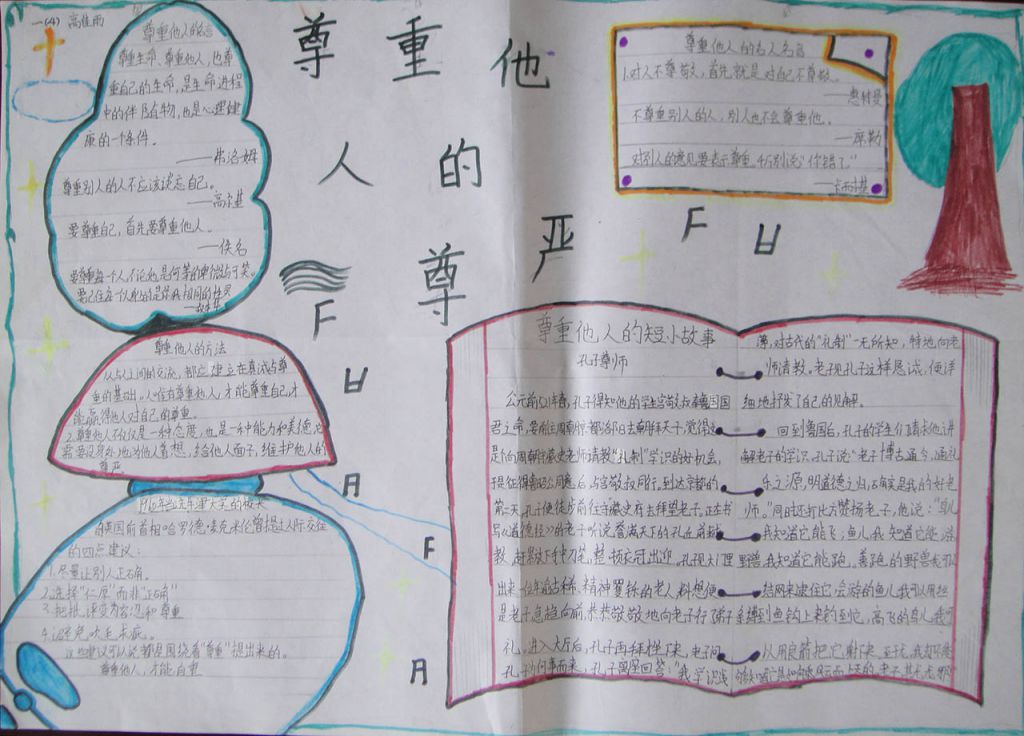 一(4) 高佳雨
尊重他
人的
尊严
尊重他人的名言
尊重生命、尊重他人，也尊
重自己的生命，是生命进程
中的伴随物，也是心理健
康的一个条件。
——弗洛姆
尊重别人的人不应该谈忘自己。
——高尔基
要尊重自己，首先要尊重他人。
——佚名
要尊重每一个人，不论他是何等的卑微与可笑。
尊重他人的名人名言
1.对人不尊敬，首先就是对自己不尊敬。
——惠特曼
不尊重别人的人，别人也不会尊重他。
——席勒
对别人的意见要表示尊重。千万别说"你错了"
——卡耐基
尊重他人的方法
人与人之间的交流，都应建立在真诚与尊
重的基础。人唯有尊重他人，才能尊重自己，才
能赢得他人对自己的尊重。
2.尊重他人不仅仅是一种态度，也是一种能力和美德，它
需要设身处地为他人着想，给他人面子，维护他人的
尊严。
的四点建议：
1.尽量让别人正确。
2.选择"仁厚"而非"正确"
3.把批评变为容忍和尊重
4.避免吹毛求疵。
这些建议可以说都是围绕着"尊重"提出来的。
尊重他人，才能自重
尊重他人的短小故事
孔子尊师
君之命，要前往周朝京都洛阳去朝拜天子，觉得这
是个向周朝守藏史老师请教"礼制"学识的好机会，
第二天，孔子便徒步前往守藏史府去拜望老子，正在书
写《道德经》的老子听说誉满天下的孔丘前来
教，赶紧放下手中刀笔，整顿衣冠出迎，孔子见大门里
出来一位年逾古稀、精神矍铄的老人，料想便
是老子，急趋向前，恭恭敬敬地向老子行了弟子
礼。进入大厅后，孔子再拜后才坐下来，老子问
孔子为何事而来，孔子离座回答："我学识浅
薄，对古代的"礼制"一无所知，特地向老
师请教。老子见孔子这样恳诚，便详
细地抒发了自己的见解。
回到鲁国后，孔子的学生们请求他讲
解老子的学识。孔子说："老子博古通今，通礼
乐之源，明道德之归，确实是我的好老
师。"同时还打比方赞扬老子，他说："鸟儿
我知道它能飞；鱼儿，我知道它能游
野兽，我知道它能跑，善跑的野兽我可
结网来逮住它，会游的鱼儿我可以用丝